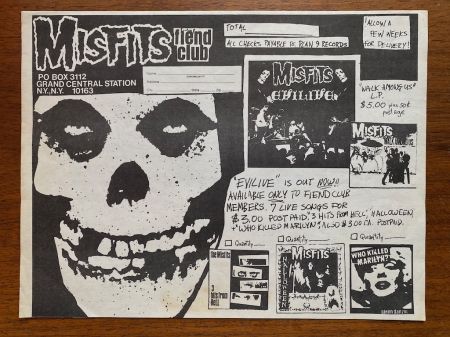 MISFITS fiend club
PO BOX 3112
GRAND CENTRAL STATION
N.Y., N.Y. 10163
TOTAL
ALL CHECKS PAYABLE TO PLAN 9 RECORDS
ALLOW A
FEW WEEKS
FOR DELIVERY!
MISFITS
EVILIVE
"WALK AMONG US"
L.P.
$5.00 plus
postage
MISFITS
"EVILIVE" IS OUT NOW!!
AVAILABLE ONLY TO FIEND CLUB
MEMBERS. 7 LIVE SONGS FOR
$3.00 POST PAID, "3 HITS FROM HELL", HALLOWEEN,
+ "WHO KILLED MARILYN", ALSO $3.00 EA. POSTPAID.
Quantity
Quantity
Quantity
the Misfits
3
hits from
Hell
MISFITS
HALLOWEEN
WHO KILLED
MARILYN?
Glenn Danzig